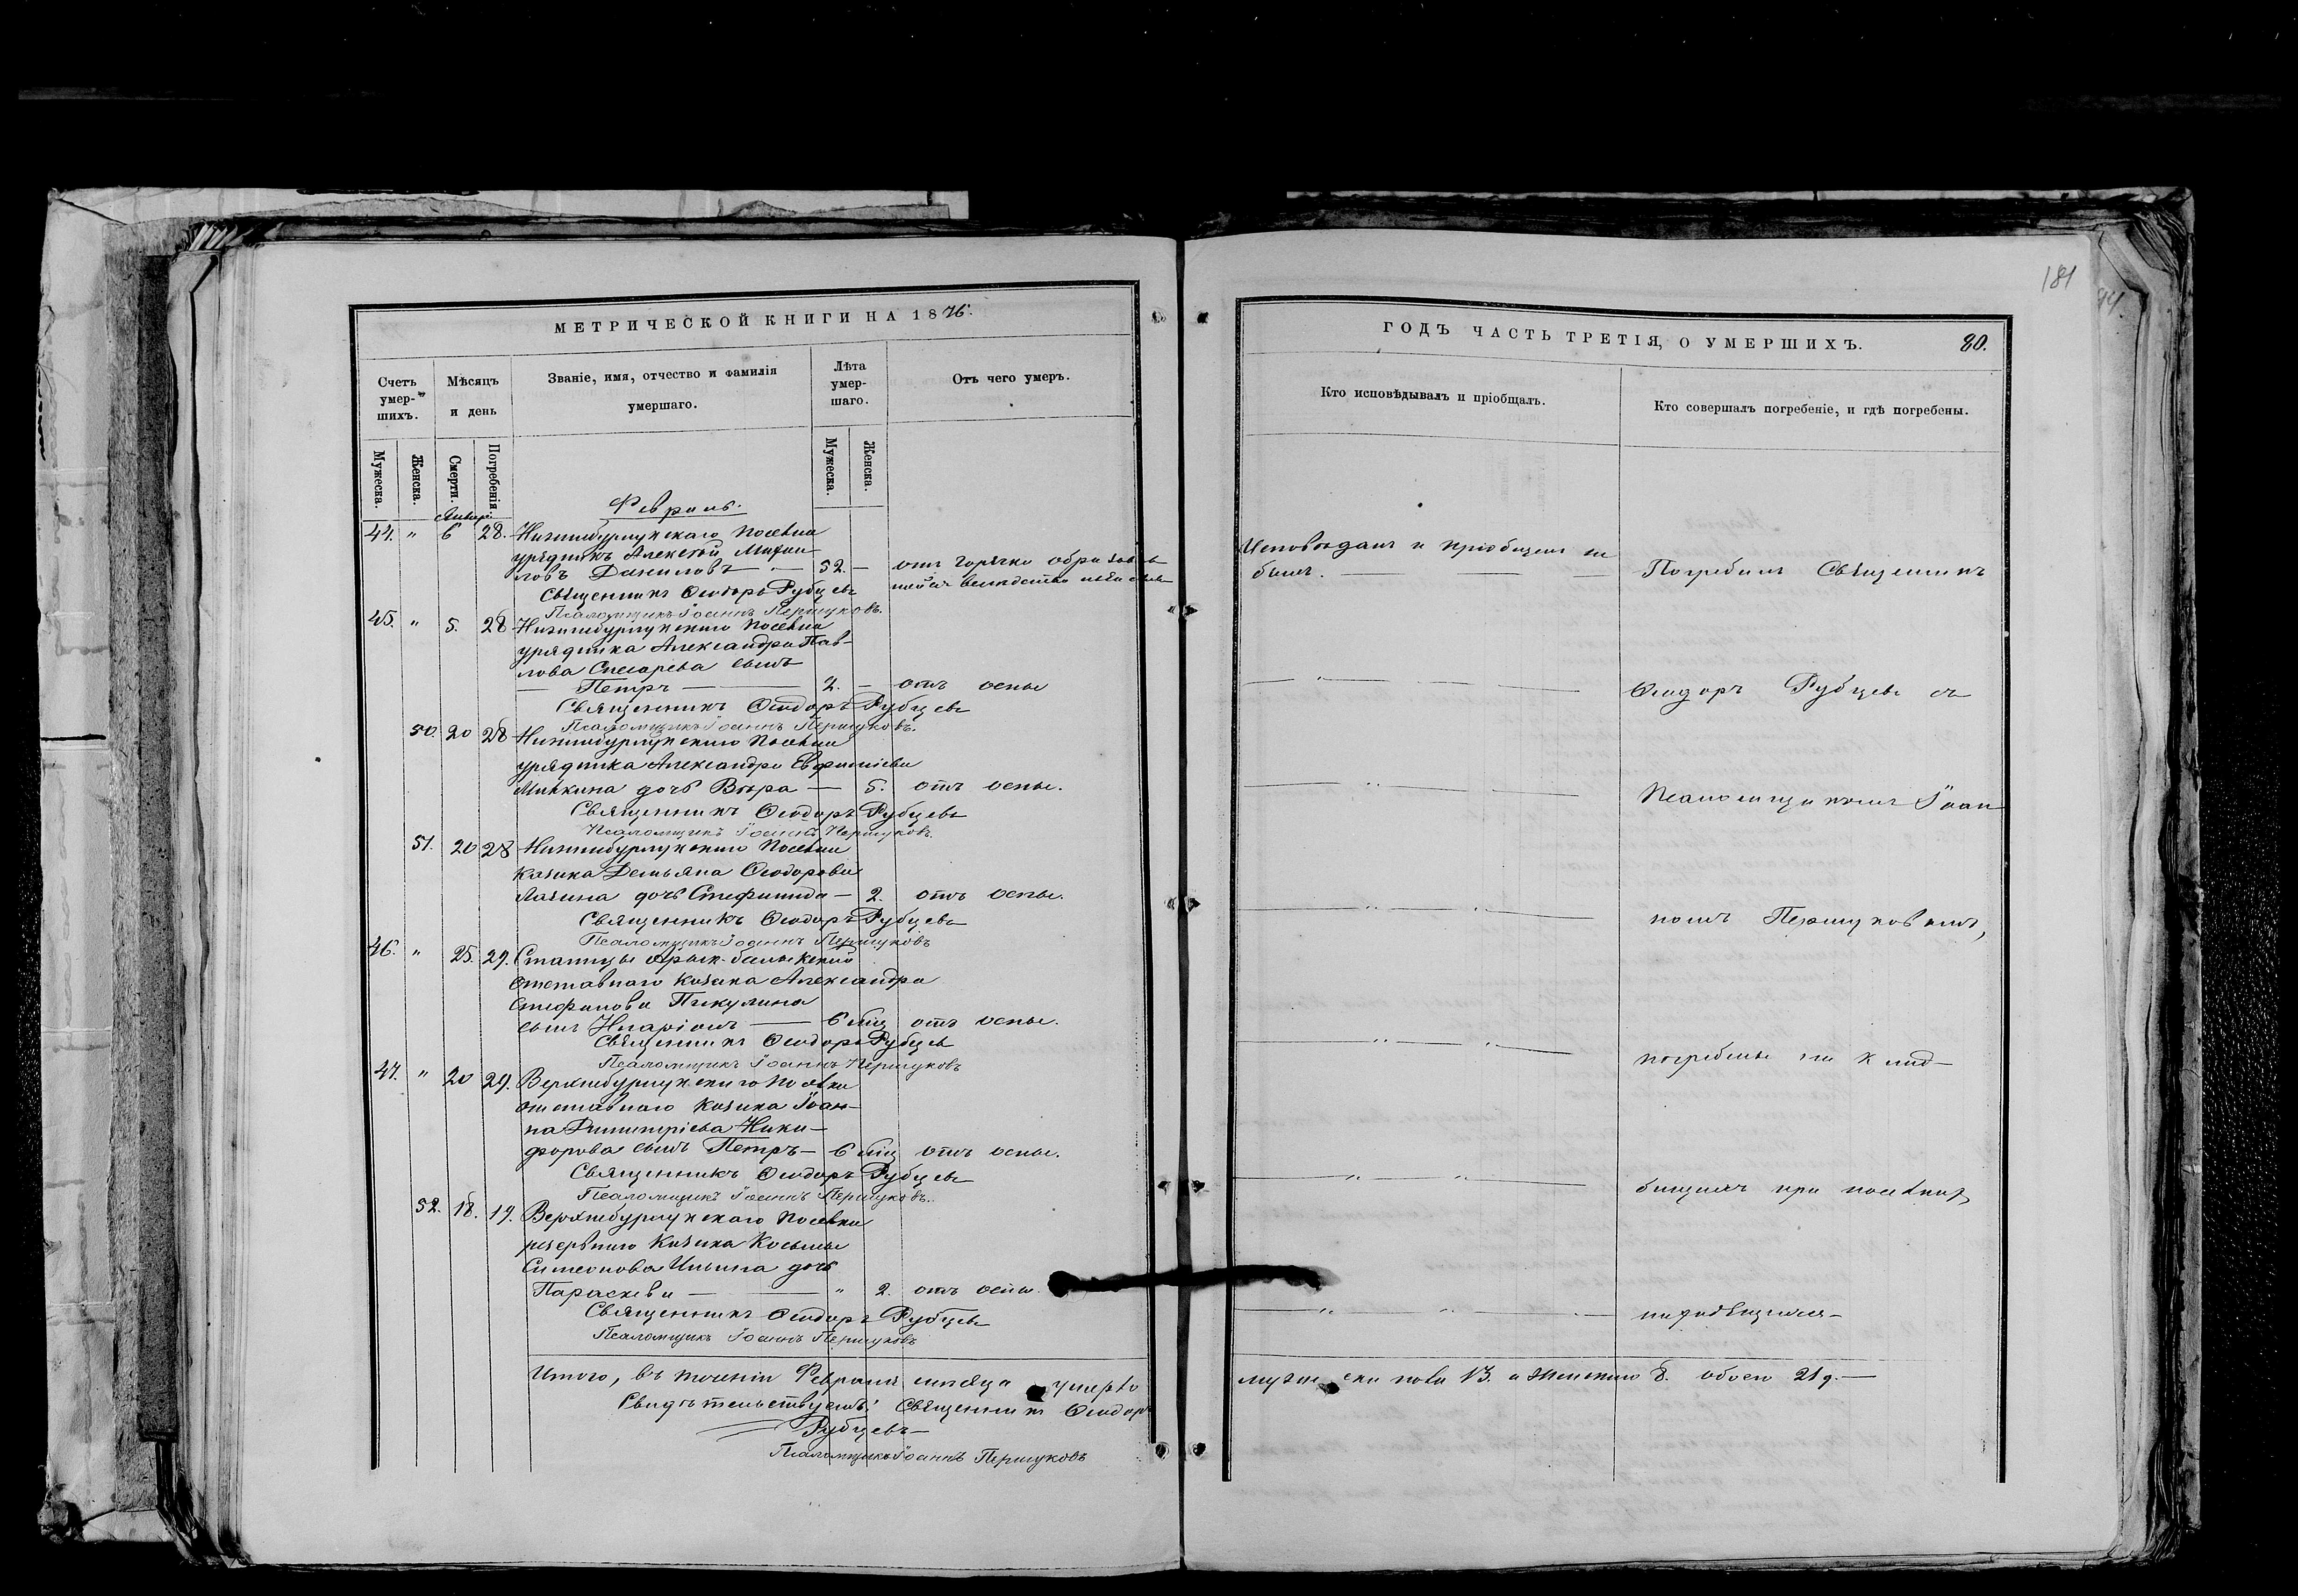 МЕТРИЧЕСКОЙ КНИГИ НА 1876.
Счетъ умер-шихъ.
Мѣсяцъ и день
Званіе, имя, отчество и фамилія умершаго.
Лѣта умер-шаго.
Отъ чего умеръ.
Мужеска.
Женска.
Смерти.
Погребенія.
Мужеска.
Женска.
Февраль.
Январ.
44. " 6 28. Нижнебурлукскаго поселка
урядникъ Алексѣй Михаи-
ловъ Даниловъ — 52. — отъ горячки
Священникъ Ѳеодоръ Рубцевъ
Псаломщикъ Іоаннъ Першуковъ.
45. " 5. 28 Нижнебурлукскаго поселка
урядника Александра Пав-
лова Слесарева сынъ
— Петръ — 2. — отъ оспы
Священникъ Ѳеодоръ Рубцевъ
Псаломщикъ Іоаннъ Першуковъ.
50. 20 28 Нижнебурлукскаго поселка
урядника Александра Евфиміева
дочь Вѣра — 5. отъ оспы.
Священникъ Ѳеодоръ Рубцевъ
Псаломщикъ Іоаннъ Першуковъ
51. 20 28 Нижнебурлукскаго поселка
казака Демьяна Ѳеодорова
дочь Стефанида — 2. отъ оспы.
Священникъ Ѳеодоръ Рубцевъ
Псаломщикъ Іоаннъ Першуковъ
46. " 25. 29. Станицы Арык-балыкской
отставнаго казака Александра
Стефанова Пикулина
сынъ Иларіонъ — 6 мц отъ оспы.
Священникъ Ѳеодоръ Рубцевъ
Псаломщикъ Іоаннъ Першуковъ
47. " 20 29. Верхнебурлукскаго поселка
отставнаго казака Іоан-
на Димитріева Ники-
форова сынъ Петръ — 6 мц отъ оспы.
Священникъ Ѳеодоръ Рубцевъ
Псаломщикъ Іоаннъ Першуковъ.
52. 18. 19. Верхнебурлукскаго поселка
казака Косьмы
Симеонова Ильина дочь
Параскева — " 2. отъ оспы.
Священникъ Ѳеодоръ Рубцевъ
Псаломщикъ Іоаннъ Першуковъ
Итого, въ теченіи Февраля мѣсяца умерло
Свидѣтельствуемъ: Священникъ Ѳеодоръ
Рубцевъ —
Псаломщикъ Іоаннъ Першуковъ
181
ГОДЪ ЧАСТЬ ТРЕТІЯ, О УМЕРШИХЪ.
80.
Кто исповѣдывалъ и пріобщалъ.
Кто совершалъ погребеніе, и гдѣ погребены.
Исповѣданъ и пріобщенъ не
былъ. —
Погребалъ Священникъ
Ѳеодоръ Рубцевъ съ
Псаломщикомъ Іоан
номъ Першуковымъ,
погребены на клад-
бищахъ при поселкахъ
находящихся —
мужеска пола 13. а женскаго 8. обоего 21 д. —